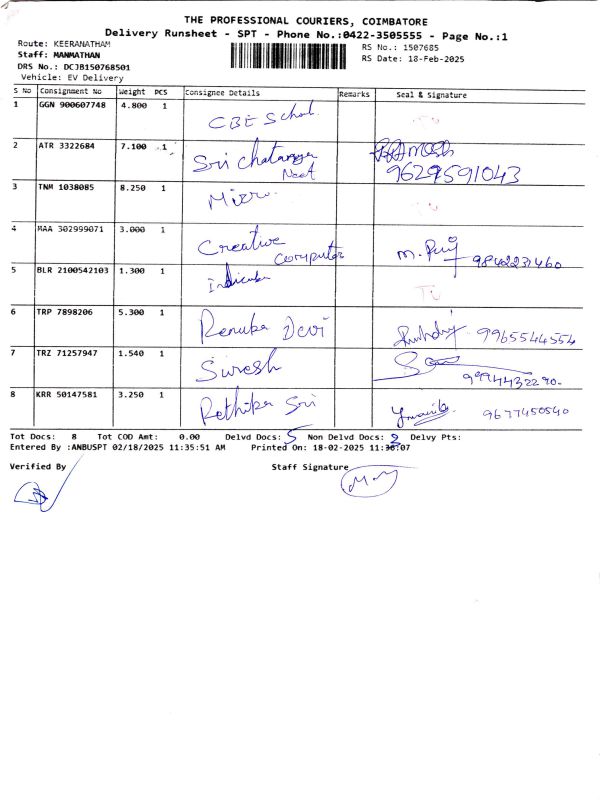 THE PROFESSIONAL COURIERS, COIMBATORE
Delivery Runsheet - SPT - Phone No.:0422-3505555 - Page No.:1
Route: KEERANATHAM
Staff: MANMATHAN
DRS No.: DCJB150768501
Vehicle: EV Delivery
RS No.: 1507685
RS Date: 18-Feb-2025
S No Consignment No Weight PCS Consignee Details Remarks Seal & Signature
1 GGN 900607748 4.800 1 CBE School
2 ATR 3322684 7.100 1 Sri Chatanya Neet 9629591043
3 TNM 1038085 8.250 1 Micro
4 MAA 302999071 3.000 1 Creative Computer 9842231460
5 BLR 2100542103 1.300 1
6 TRP 7898206 5.300 1 Renuka Devi 9965544554
7 TRZ 71257947 1.540 1 Suresh 9994432290.
8 KRR 50147581 3.250 1 Rethika Sri 9677450540
Tot Docs: 8 Tot COD Amt: 0.00 Delvd Docs: 5 Non Delvd Docs: Delvy Pts:
Entered By :ANBUSPT 02/18/2025 11:35:51 AM Printed On: 18-02-2025
Verified By Staff Signature